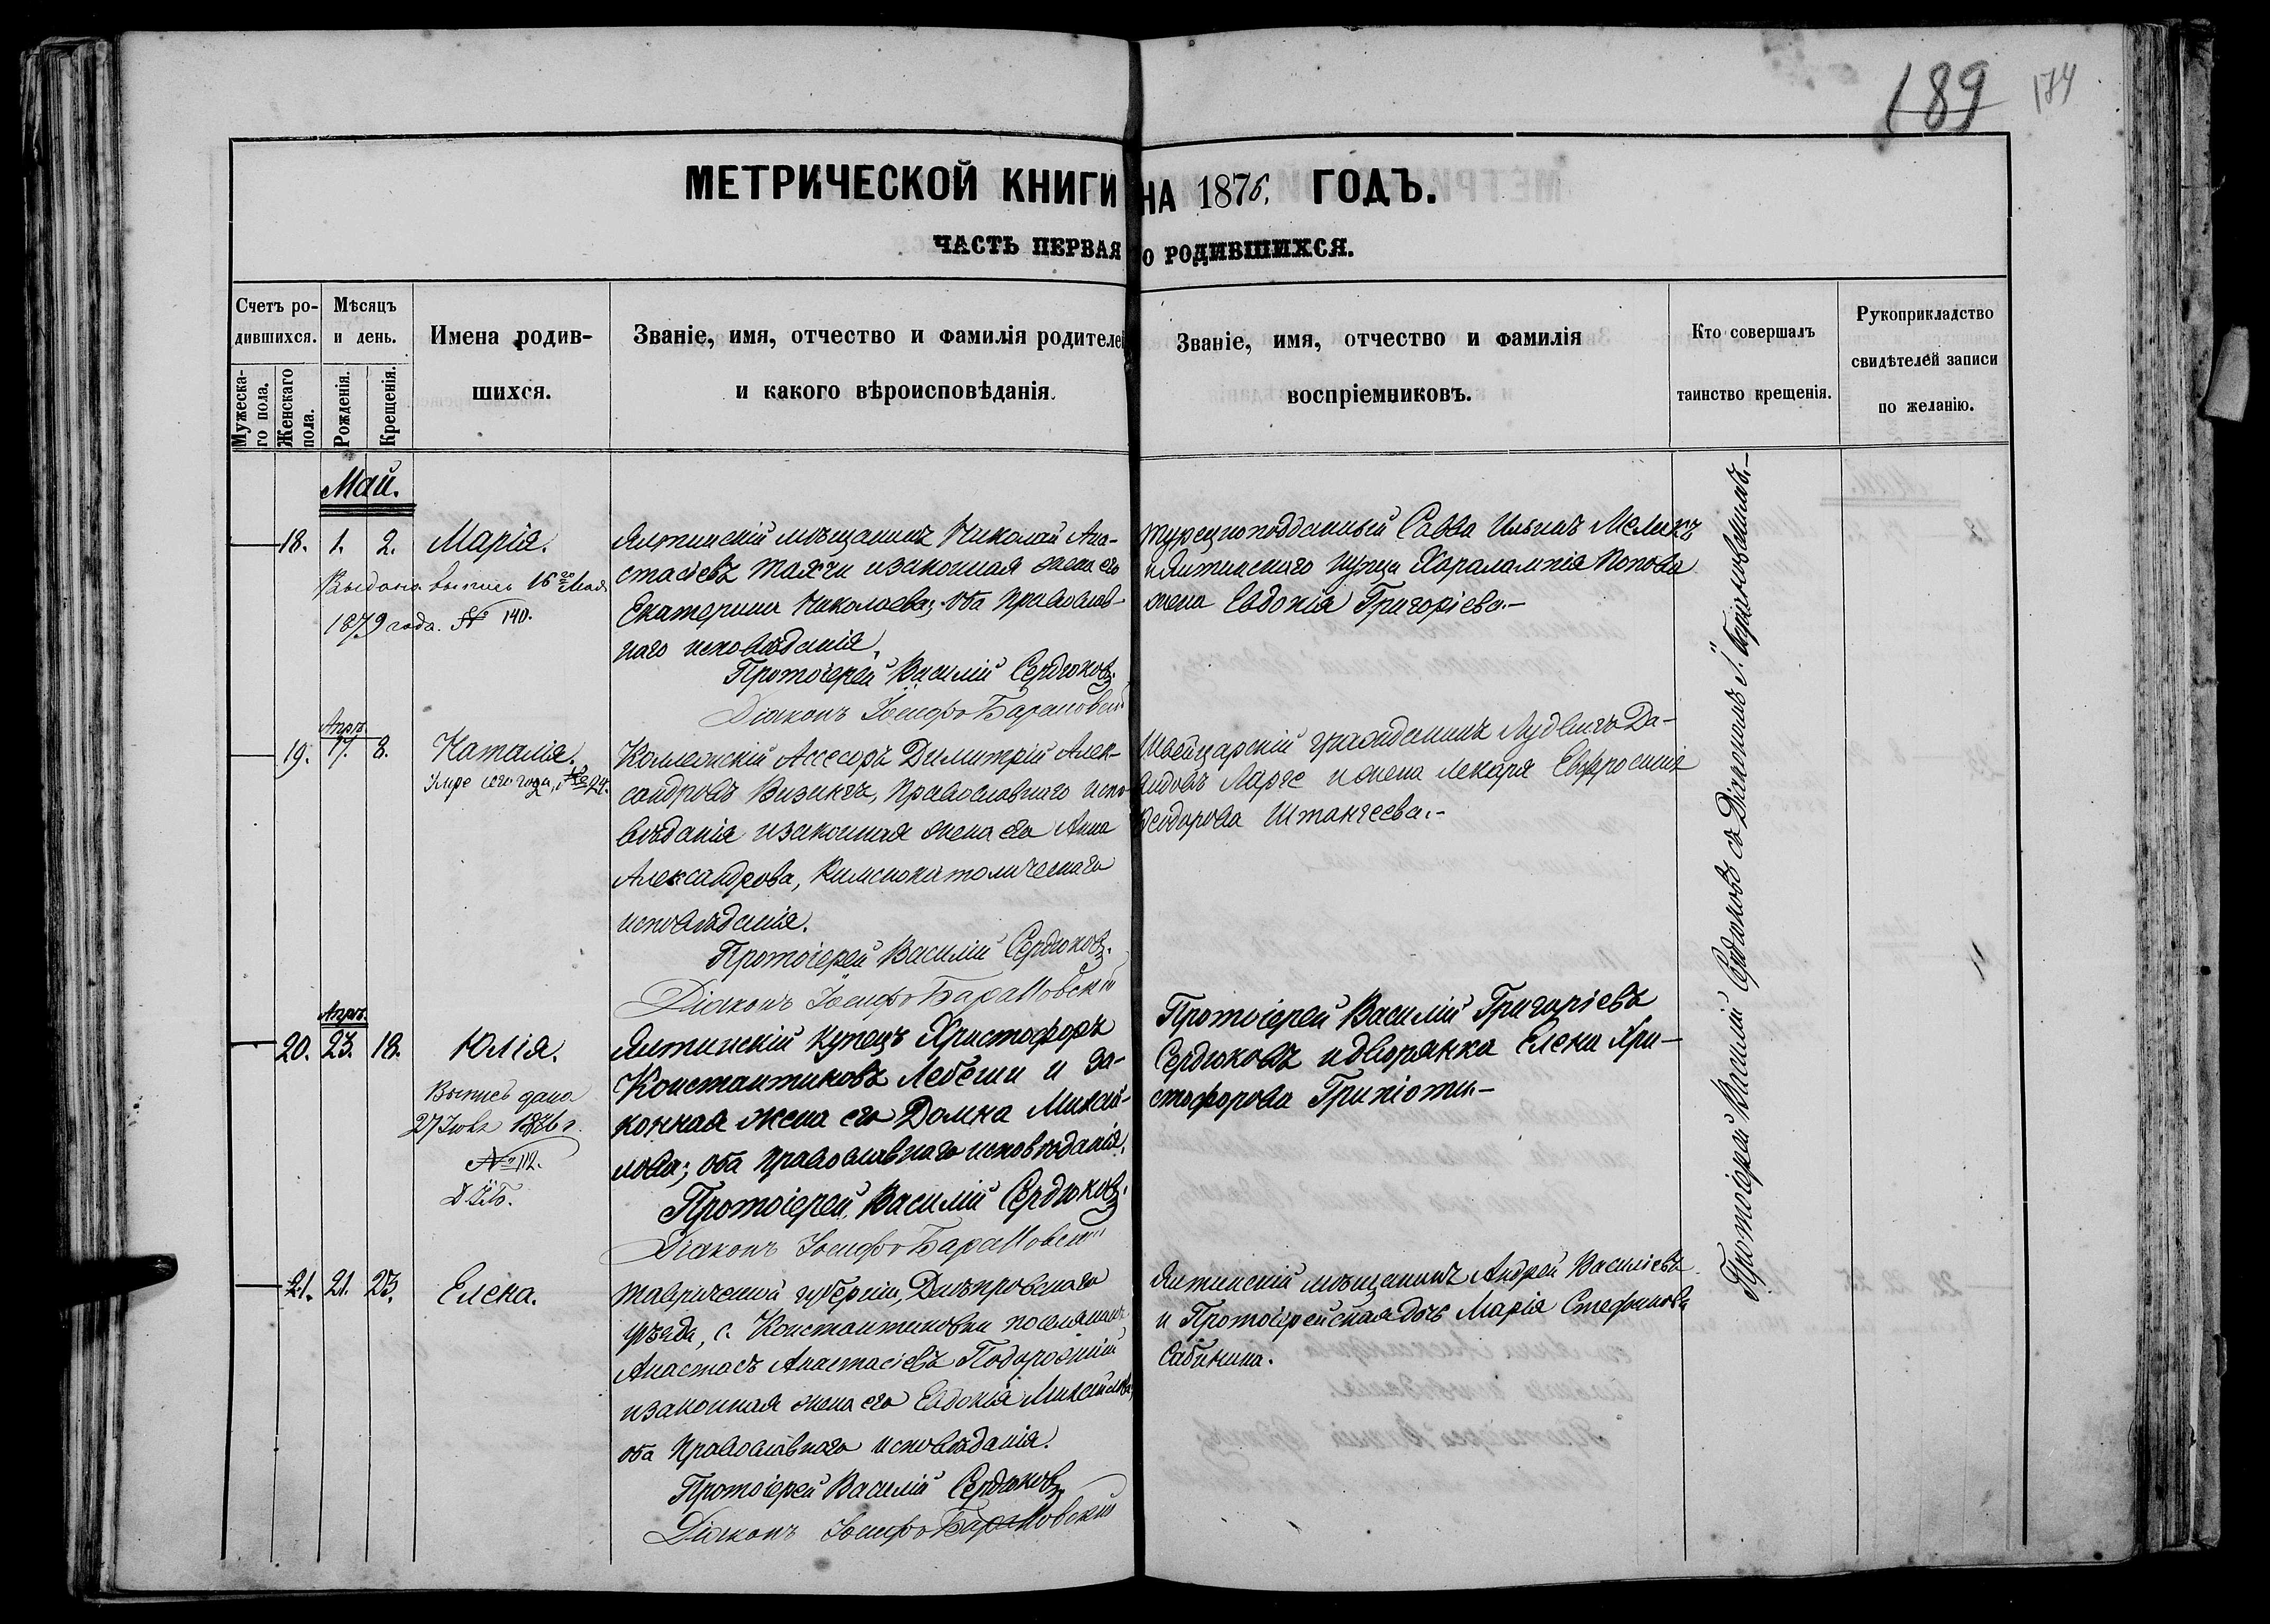 189 174
МЕТРИЧЕСКОЙ КНИГИ НА 1876, ГОДЪ.
ЧАСТЬ ПЕРВАЯ О РОДИВШИХСЯ.
Счетъ ро-
дившихся.
Мужеска-
го пола.
Женскаго
пола.
Мѣсяцъ
и день.
Рожденія.
Крещенія.
Имена родив-
шихся.
Званіе, имя, отчество и фамилія родителей
и какого вѣроисповѣданія.
Званіе, имя, отчество и фамилія
воспріемниковъ.
Кто совершалъ
таинство крещенія.
Рукоприкладство
свидѣтелей записи
по желанію.
Май.
18. 1. 2. Марія.
Выдана выпись 16го Мая
1879 года. № 140.
Ялтинскій мѣщанинъ Николай Ана-
стасіевъ и законная жена его
Екатерина Николаева; оба православ-
наго исповѣданія.
Протоіерей Василій Сердюковъ.
Діаконъ Іосифъ Барановскій
Турецкоподданный Савва Ильинъ Меликъ
и Ялтинскаго купца Харалампія Попова
жена Евдокія Григоріева.-
Апрѣ.
19. 17. 8. Наталія.
Умре сего года,
Коллежскій Ассесоръ Димитрій Алек-
сандровъ Визингъ, православнаго испо-
вѣданія и законная жена его Анна
Александрова, Римскокатолическаго
исповѣданія.
Протоіерей Василій Сердюковъ.
Діаконъ Іосифъ Барановскій
Швейцарскій гражданинъ Лудвигъ Да-
видовъ Ларге и жена лекаря Евфросинія
Ѳеодорова Штангеева.-
Апрѣ.
20. 23. 18. Юлія.
Выпись дана
27 Іюня 1876 г.
№ 112.
Д. І. Б.
Ялтинскій купецъ Христофоръ
Константиновъ Лебеши и за-
конная жена его Домна Михай-
лова; оба православнаго исповѣданія.
Протоіерей Василій Сердюковъ.
Діаконъ Іосифъ Барановскій
Протоіерей Василій Григоріевъ
Сердюковъ и дворянка Елена Хри-
стофорова Грипіоти.-
21. 21. 23. Елена.
Таврической губерніи, Днѣпровскаго
уѣзда, с. Константиновки поселянинъ
Анастасъ Анастасіевъ Подорожній
и законная жена его Евдокія Михайлова,
оба православнаго исповѣданія.
Протоіерей Василій Сердюковъ
Діаконъ Іосифъ Барановскій
Ялтинскій мѣщанинъ Андрей Василіевъ
и Протоіерейская дочь Марія Стефанова
Сабинина.
Протоіерей Василій Сердюковъ съ Діакономъ І. Барановскимъ.-